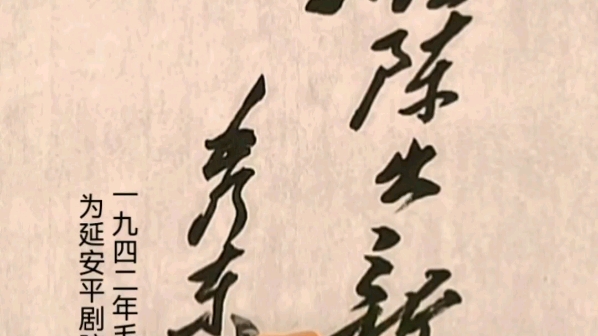 陈出新
毛泽东
一九四二年毛
为延安平剧